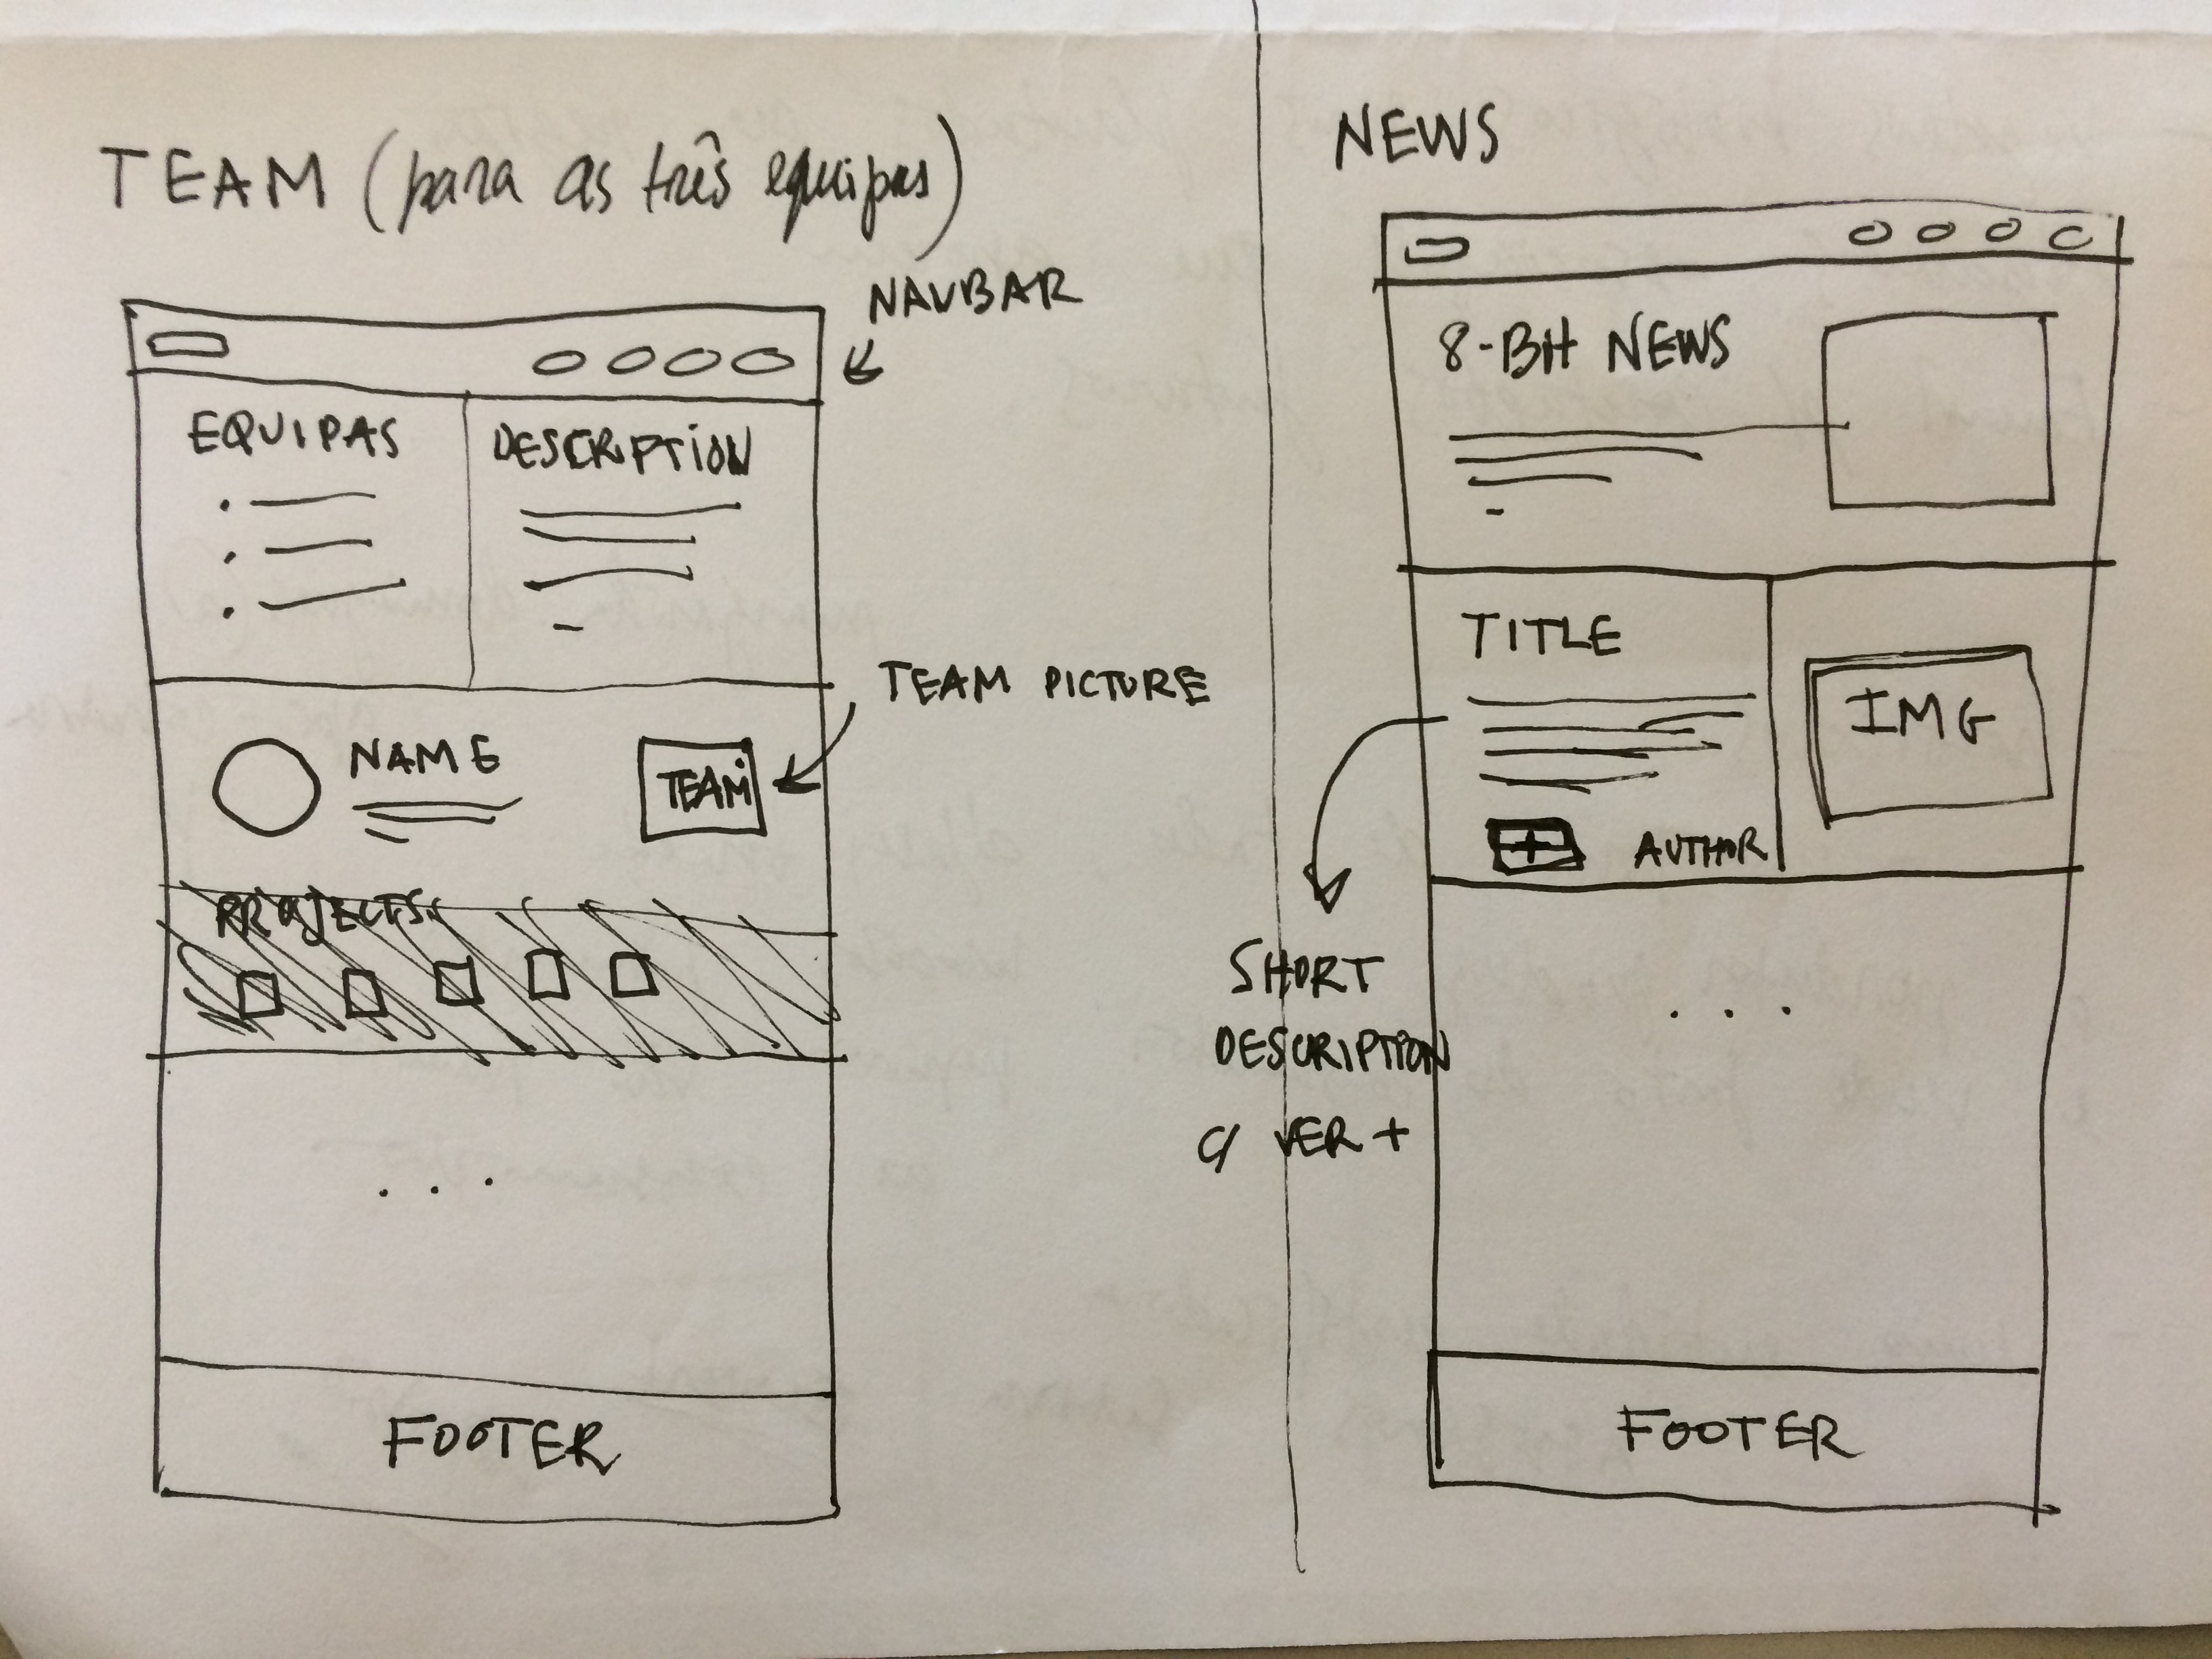 TEAM (para as três equipas)
NAVBAR
EQUIPAS
DESCRIPTION
TEAM PICTURE
NAME
TEAM
PROJECTS
. . .
FOOTER
NEWS
8-BIT NEWS
TITLE
IMG
+
AUTHOR
SHORT
DESCRIPTION
C/ VER +
. . .
FOOTER